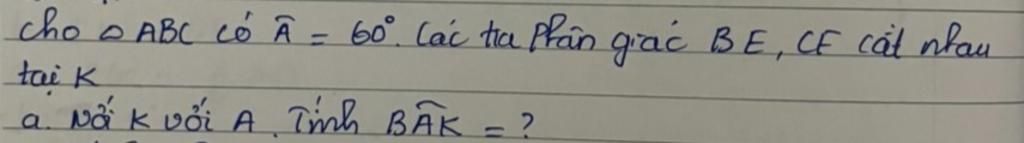 Cho △ ABC có Â = 60°. Các tia phân giác BE, CF cắt nhau
tại K
a. Nối K với A. Tính BÂK = ?